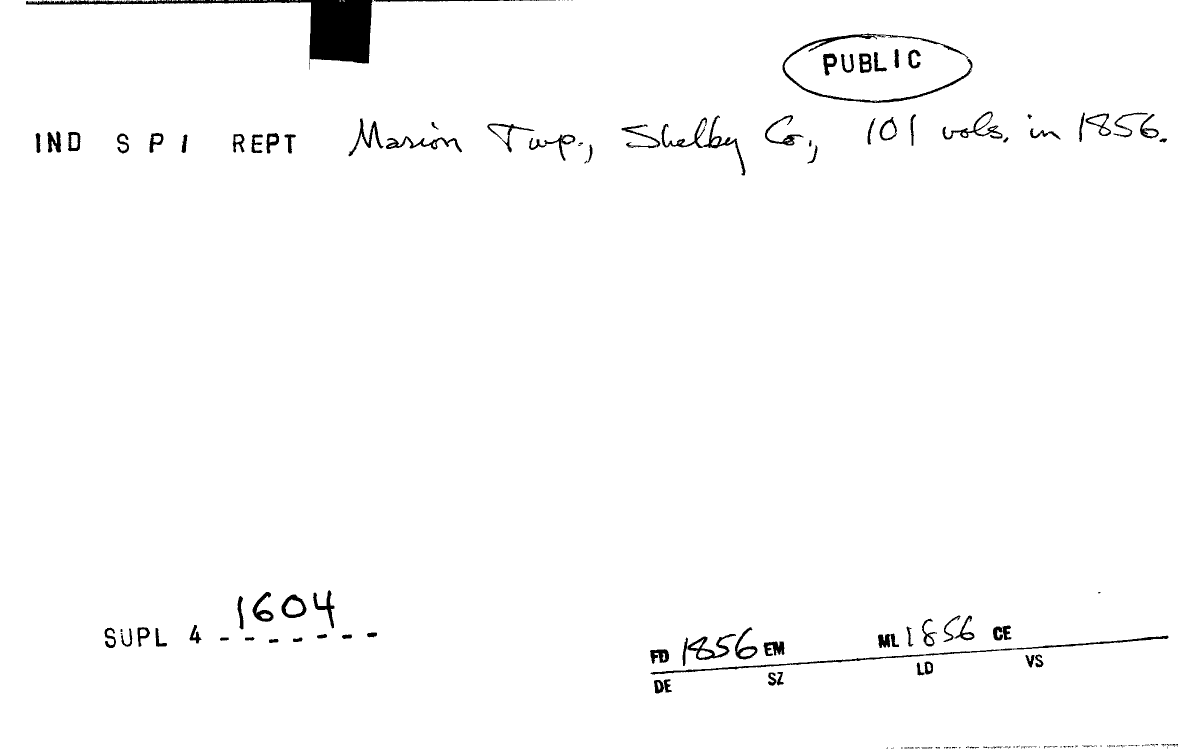 PUBLIC
IND S P I REPT Marion Twp., Shelby Co., 101 vols. in 1856.
SUPL 4 1604
FD 1856 EM ML 1856 CE
DE SZ LD VS